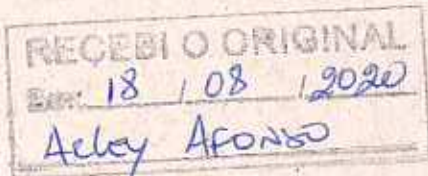 RECEBI O ORIGINAL
Em: 18 / 08 / 2020
Acley Afonso